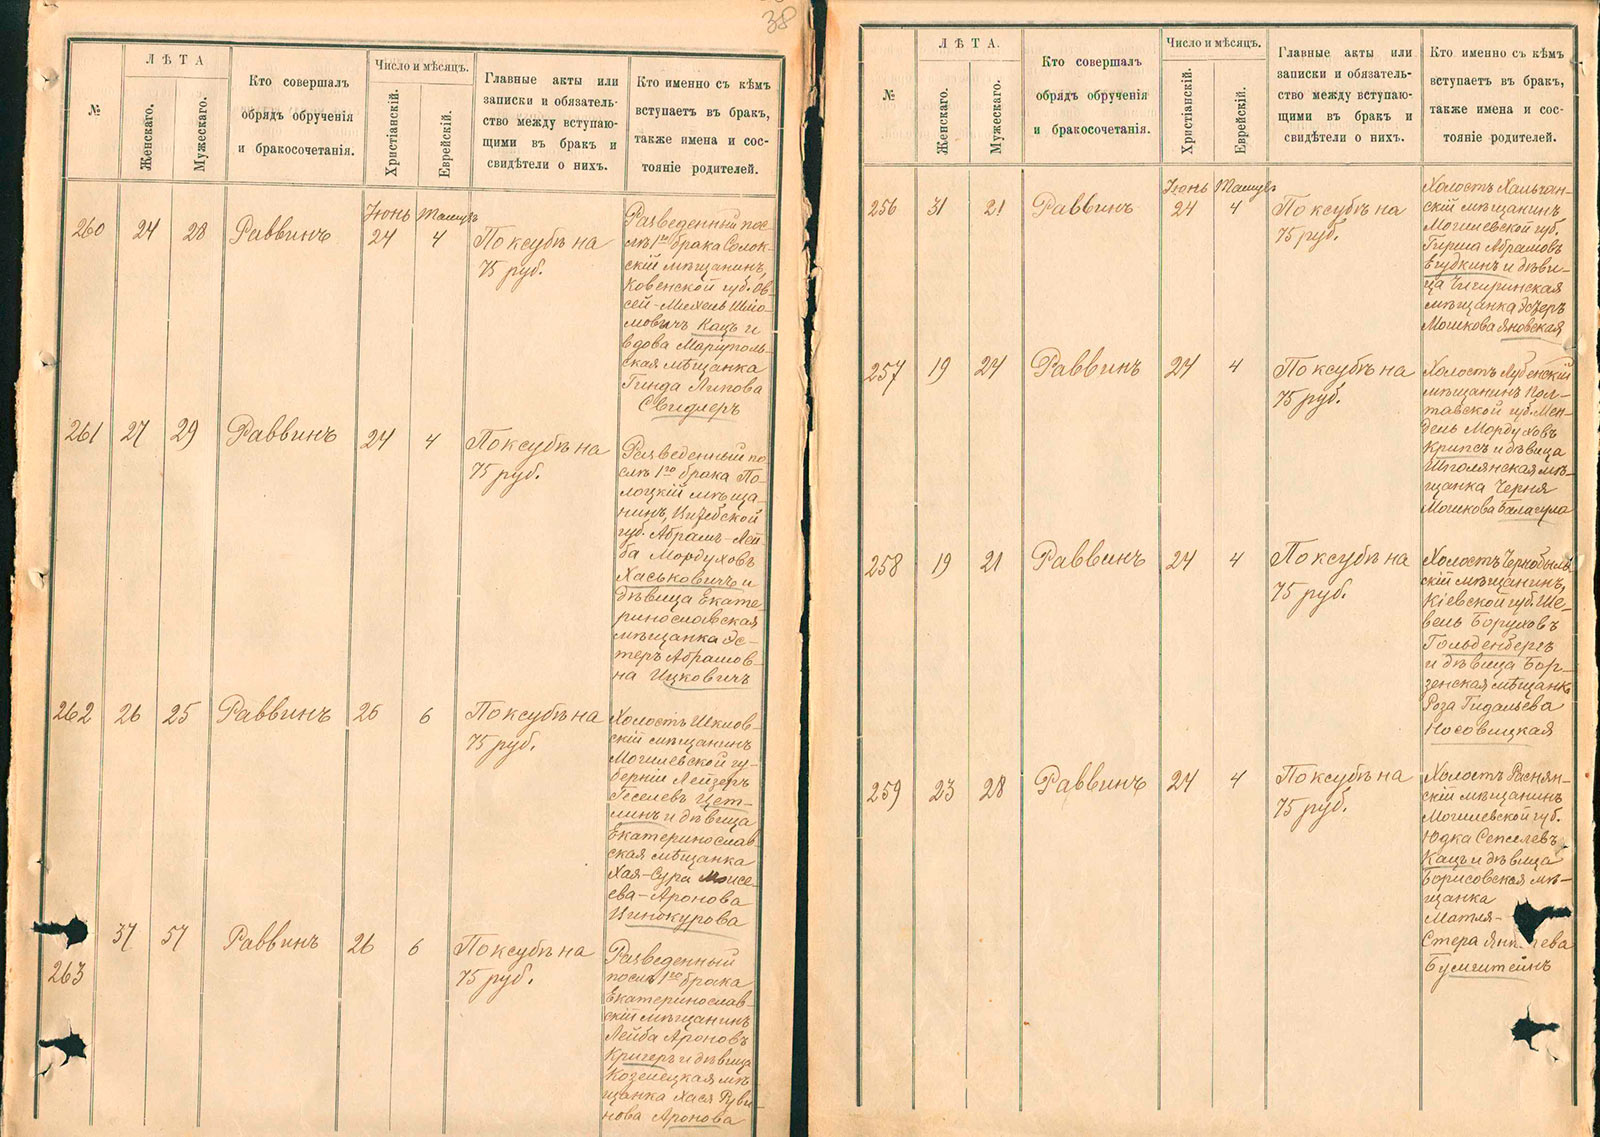 38
№
ЛѢТА
Женскаго.
Мужескаго.
Кто совершалъ
обрядъ обрученія
и бракосочетанія.
Число и мѣсяцъ.
Христіанскій.
Еврейскій.
Главные акты или
записки и обязатель-
ство между вступаю-
щими въ бракъ и
свидѣтели о нихъ.
Кто именно съ кѣмъ
вступаетъ въ бракъ,
также имена и сос-
тояніе родителей.
260 24 28 Раввинъ Іюнь 24 Тамузъ 4 По ксубѣ на
75 руб.
Разведенный пос-
лѣ 1го брака Солок-
скій мѣщанинъ,
Ковенской губ. Ов-
сей-Михель Шмо-
мовичъ Кацъ и
вдова Маріуполь-
ская мѣщанка
Гинда Липова
Свидлеръ
261 27 29 Раввинъ 24 4 По ксубѣ на
75 руб.
Разведенный по
слѣ 1го брака По-
лоцкій мѣща-
нинъ, Витебской
губ. Абрамъ-Лей-
ба Мордуховъ
Хаськовичъ и
дѣвица Екате-
ринославская
мѣщанка Эс-
теръ Абрамов-
на Ицковичъ
262 26 25 Раввинъ 26 6 По ксубѣ на
75 руб.
Холостъ Шклов-
скій мѣщанинъ
Могилевской гу-
берніи Лейзеръ
Геселевъ Цет-
линъ и дѣвица
Екатеринослав
ская мѣщанка
Хая-Сура Моисе-
ева-Аронова
Винокурова
263 37 57 Раввинъ 26 6 По ксубѣ на
75 руб.
Разведенный
послѣ 1го брака
Екатеринослав-
скій мѣщанинъ
Лейба Ароновъ
Кригеръ и дѣвица
Козелецкая мѣ
щанка Хася Руви-
нова Аронова
№
ЛѢТА.
Женскаго.
Мужескаго.
Кто совершалъ
обрядъ обрученія
и бракосочетанія.
Число и мѣсяцъ.
Христіанскій.
Еврейскій.
Главные акты или
записки и обязатель-
ство между вступаю-
щими въ бракъ и
свидѣтели о нихъ.
Кто именно съ кѣмъ
вступаетъ въ бракъ,
также имена и сос-
тояніе родителей.
256 31 21 Раввинъ Іюнь 24 Тамузъ 4 По ксубѣ на
75 руб.
Холостъ Хальчан-
скій мѣщанинъ
Могилевской губ.
Гирша Абрамовъ
Егудкинъ и дѣви-
ца Чигиринская
мѣщанка Эстеръ
Мошкова Яновская
257 19 24 Раввинъ 24 4 По ксубѣ на
75 руб.
Холостъ Лубенскій
мѣщанинъ Пол-
тавской губ. Мен-
дель Мордуховъ
Крипсъ и дѣвица
Шполянская мѣ-
щанка Черня
Мошкова Балагула
258 19 21 Раввинъ 24 4 По ксубѣ на
75 руб.
Холостъ Чернобыль
скій мѣщанинъ,
Кіевской губ. Ше-
вель Боруховъ
Гольденбергъ
и дѣвица Бор-
зенская мѣщанка
Роза Гидальева
Носовицкая
259 23 28 Раввинъ 24 4 По ксубѣ на
75 руб.
Холостъ Раснян-
скій мѣщанинъ
Могилевской губ.
Юдка Сепселевъ
Кацъ и дѣвица
Борисовская мѣ-
щанка
Матля-
Стера
Бумштейнъ